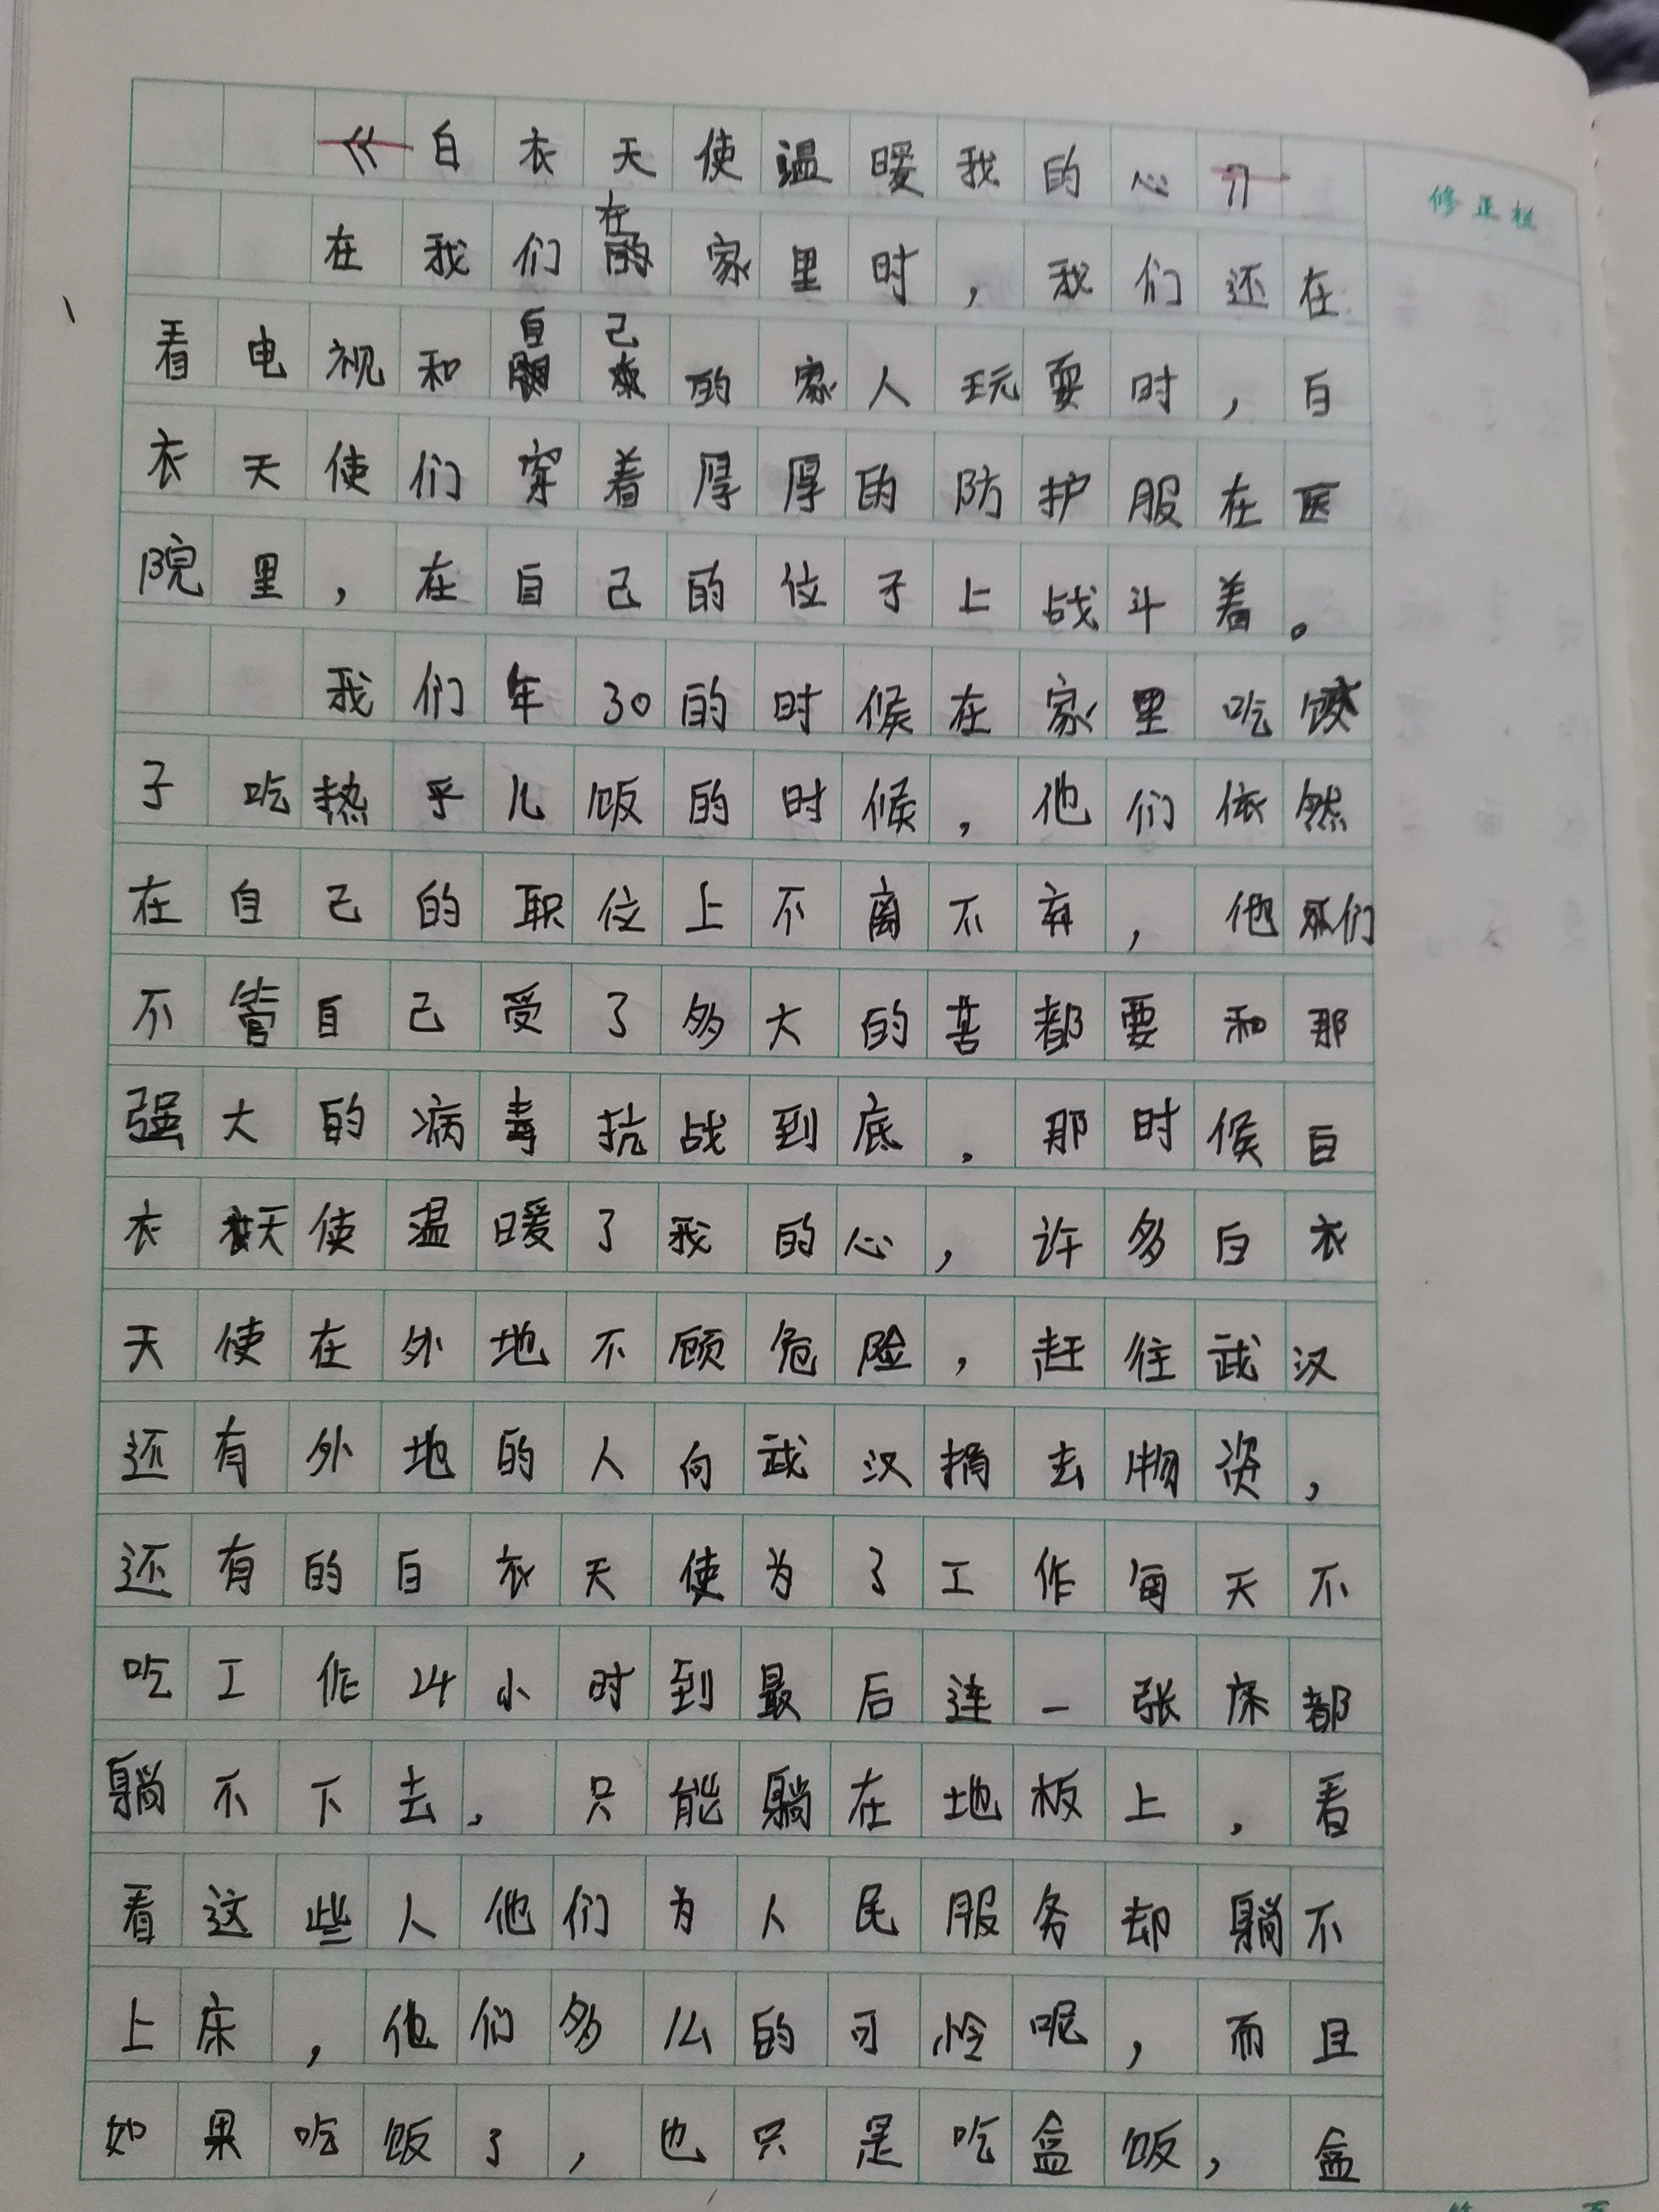 《白衣天使温暖我的心》
修正栏
在我们在家里时，我们还在
看电视和自己的家人玩耍时，白
衣天使们穿着厚厚的防护服在医
院里，在自己的位子上战斗着。
我们年30的时候在家里吃饺
子吃热乎儿饭的时候，他们依然
在自己的职位上不离不弃，他们
不管自己受了多大的苦都要和那
强大的病毒抗战到底。那时候白
衣天使温暖了我的心，许多白衣
天使在外地不顾危险，赶往武汉
还有外地的人向武汉捐去物资，
还有的白衣天使为了工作每天不
吃工作24小时到最后连一张床都
躺不下去，只能躺在地板上，看
看这些人他们为人民服务却躺不
上床，他们多么的可怜呢，而且
如果吃饭了，也只是吃盒饭，盒